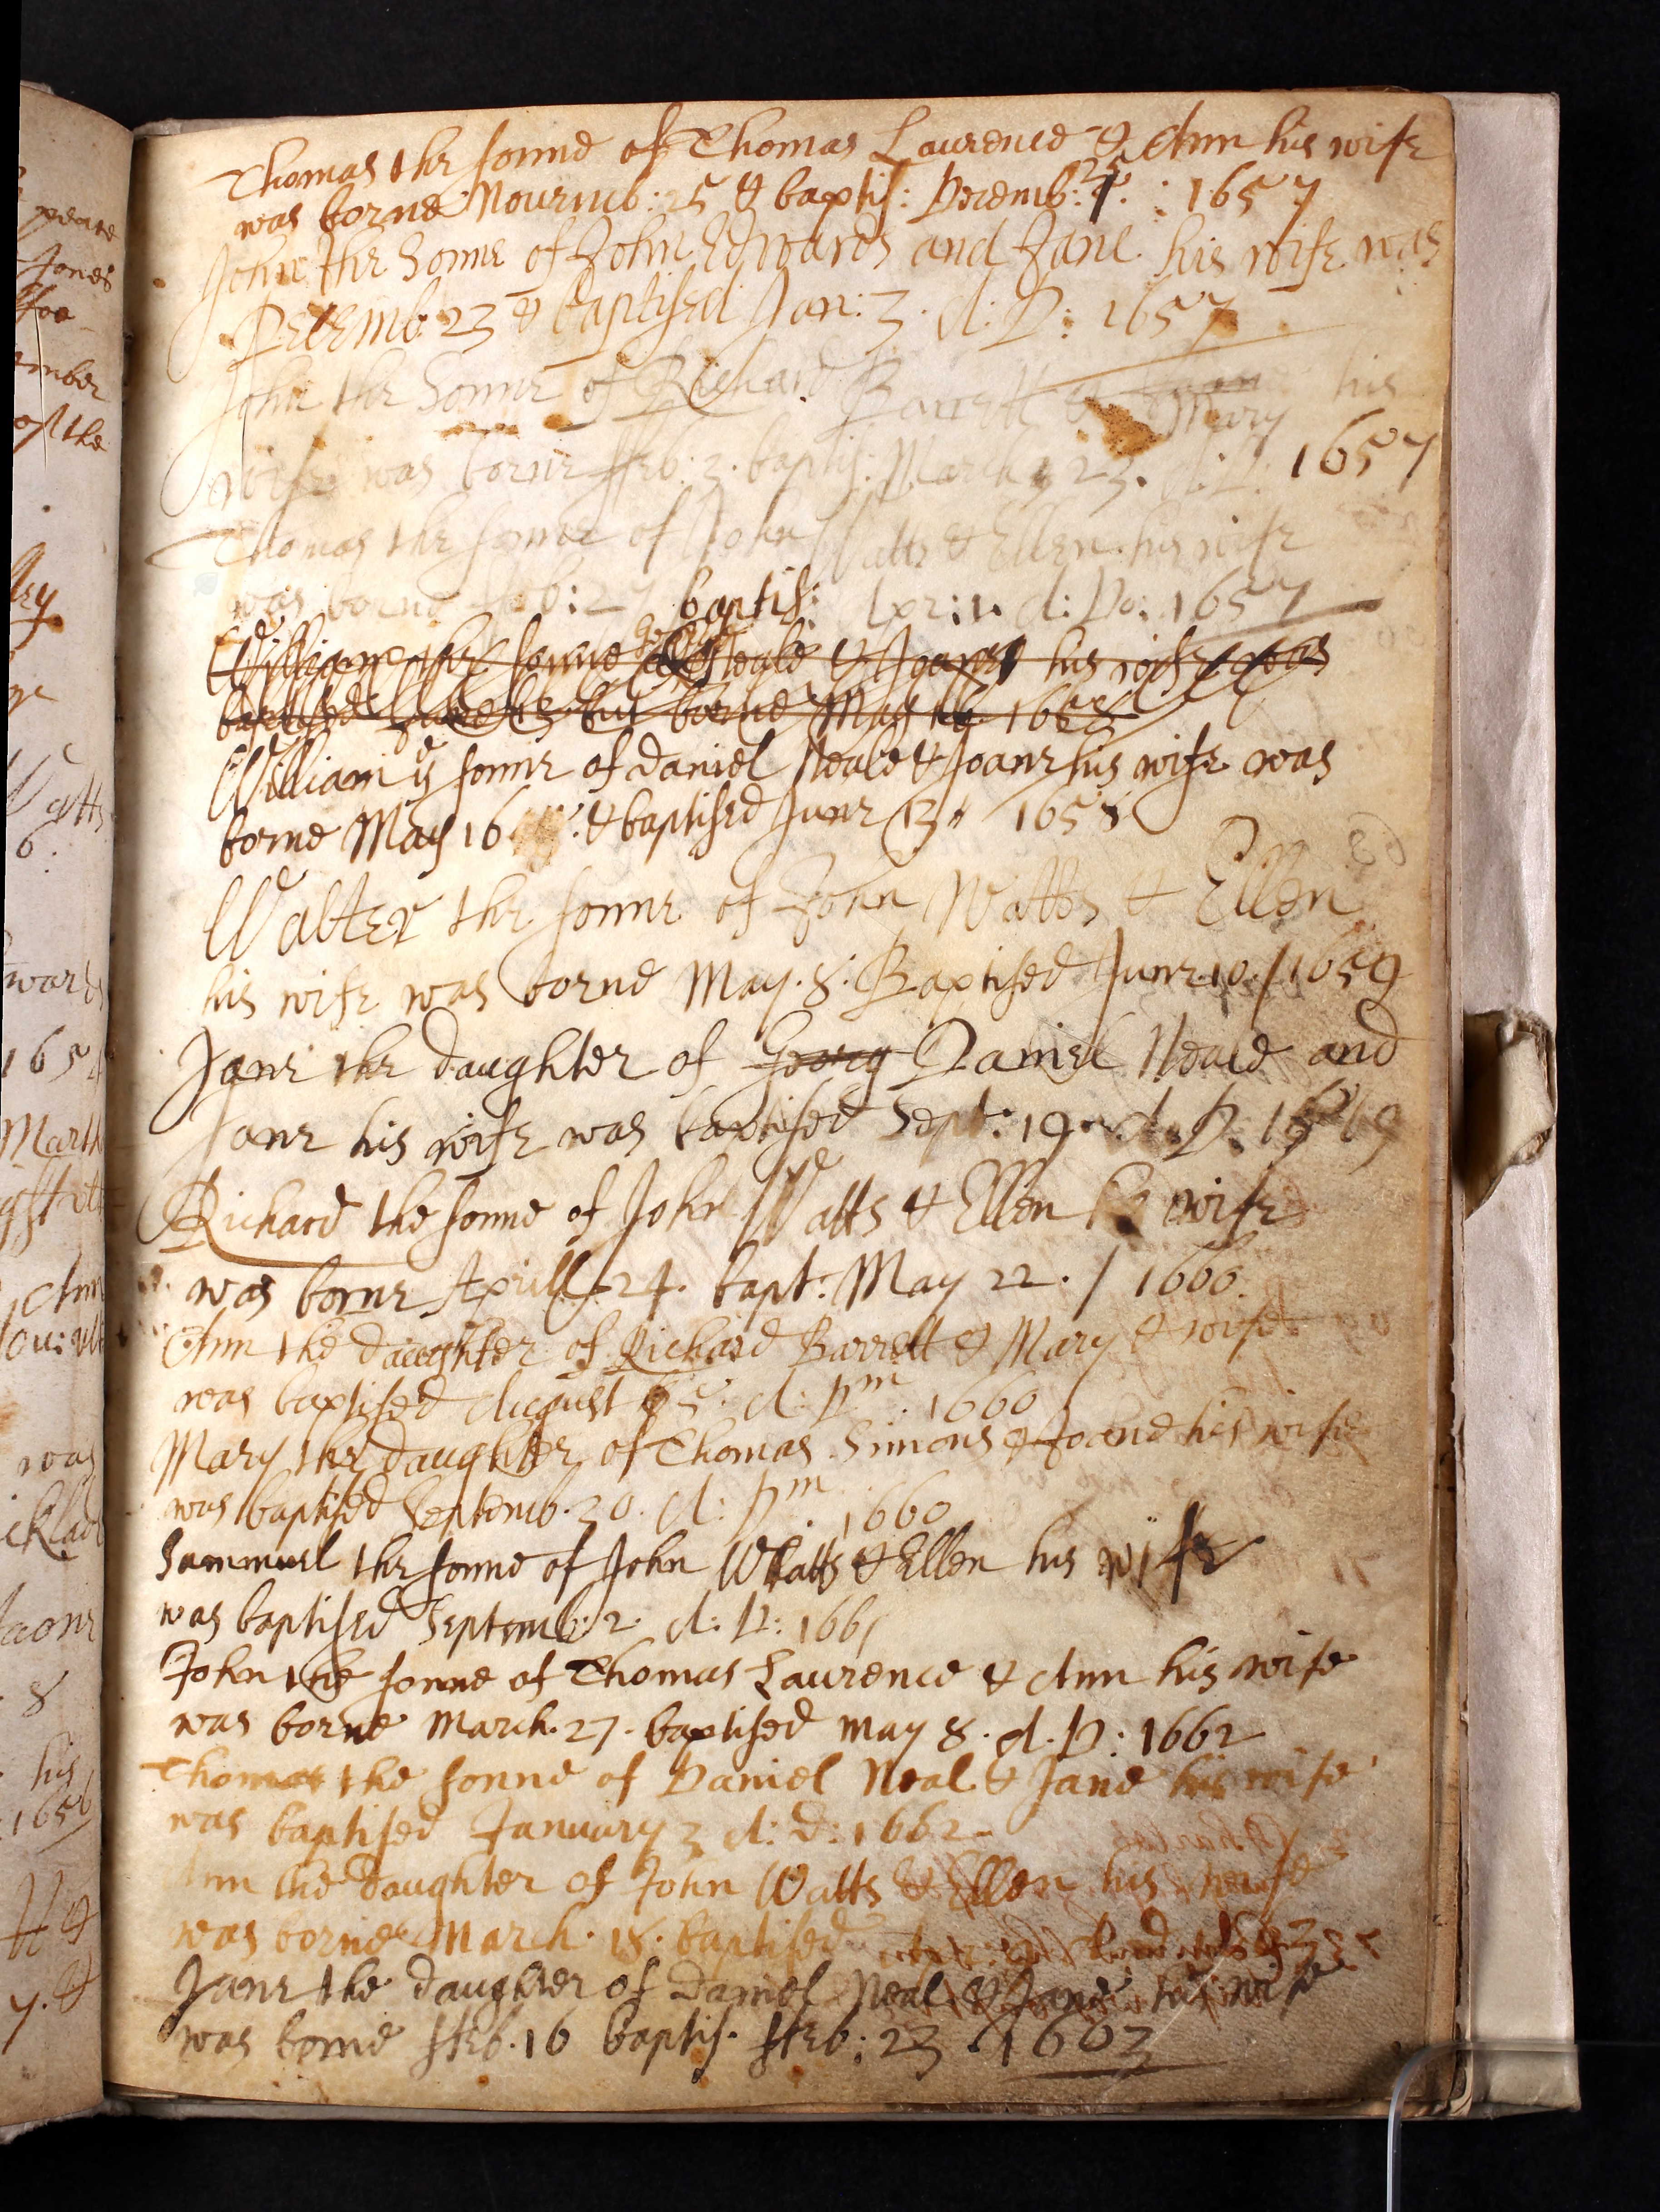 Thomas the sonne of Thomas Laurence & Ann his wife
was borne Nouemb: 25 & baptis: Decemb: 25 : 1657
John the Sonne of John Edwards and Jane his wife was
Decemb: 23 & baptised Jan: 3. A: D: 1657
John the Sonne of Richard Barrett & Mary his
wife was borne ffeb: 3. baptis: March 23. A: D: 1657
Thomas the sonne of John Watts & Ellen his wife
was borne ffeb: 27 baptis: Apr: 1. A: Do: 1657
William the sonne George Neale & Joane his wife was
baptised June 13 but borne May 16 1658
William ye sonne of Daniel Neale & Joane his wife was
borne May 16 & baptised June 13 1658
Walter the sonne of John Watts & Ellen
his wife was borne May. 8. Baptised June 10. / 1659
Jane the daughter of Georg Daniel Neale and
Jane his wife was baptised Sept: 19 A. D. 1659
Richard the sonne of John Watts & Ellen his wife
was borne Aprill 24. bapt: May 22. / 1660.
Ann the daughter of Richard Barrett & Mary & wife
was baptised August 5. A: Dm. 1660
Mary the daughter of Thomas Simons & Joane his wife
was baptised Septemb. 30. A: Dm. 1660
Sammuel the sonne of John Whatts & Ellen his wife
was baptised Septemb: 2. A: D: 1661
John the sonne of Thomas Laurence & Ann his wife
was borne March. 27. baptised may 8. A. D: 1662
Thomas the sonne of Daniel Neal & Jane his wife
was baptised January 3 A: D: 1662
Ann the daughter of John Watts & Ellen his wife
was borne March. 18. baptised
Jane the daughter of Daniel Neal & Jane his wife
was borne ffeb. 16 baptis. ffeb: 23 . 1663